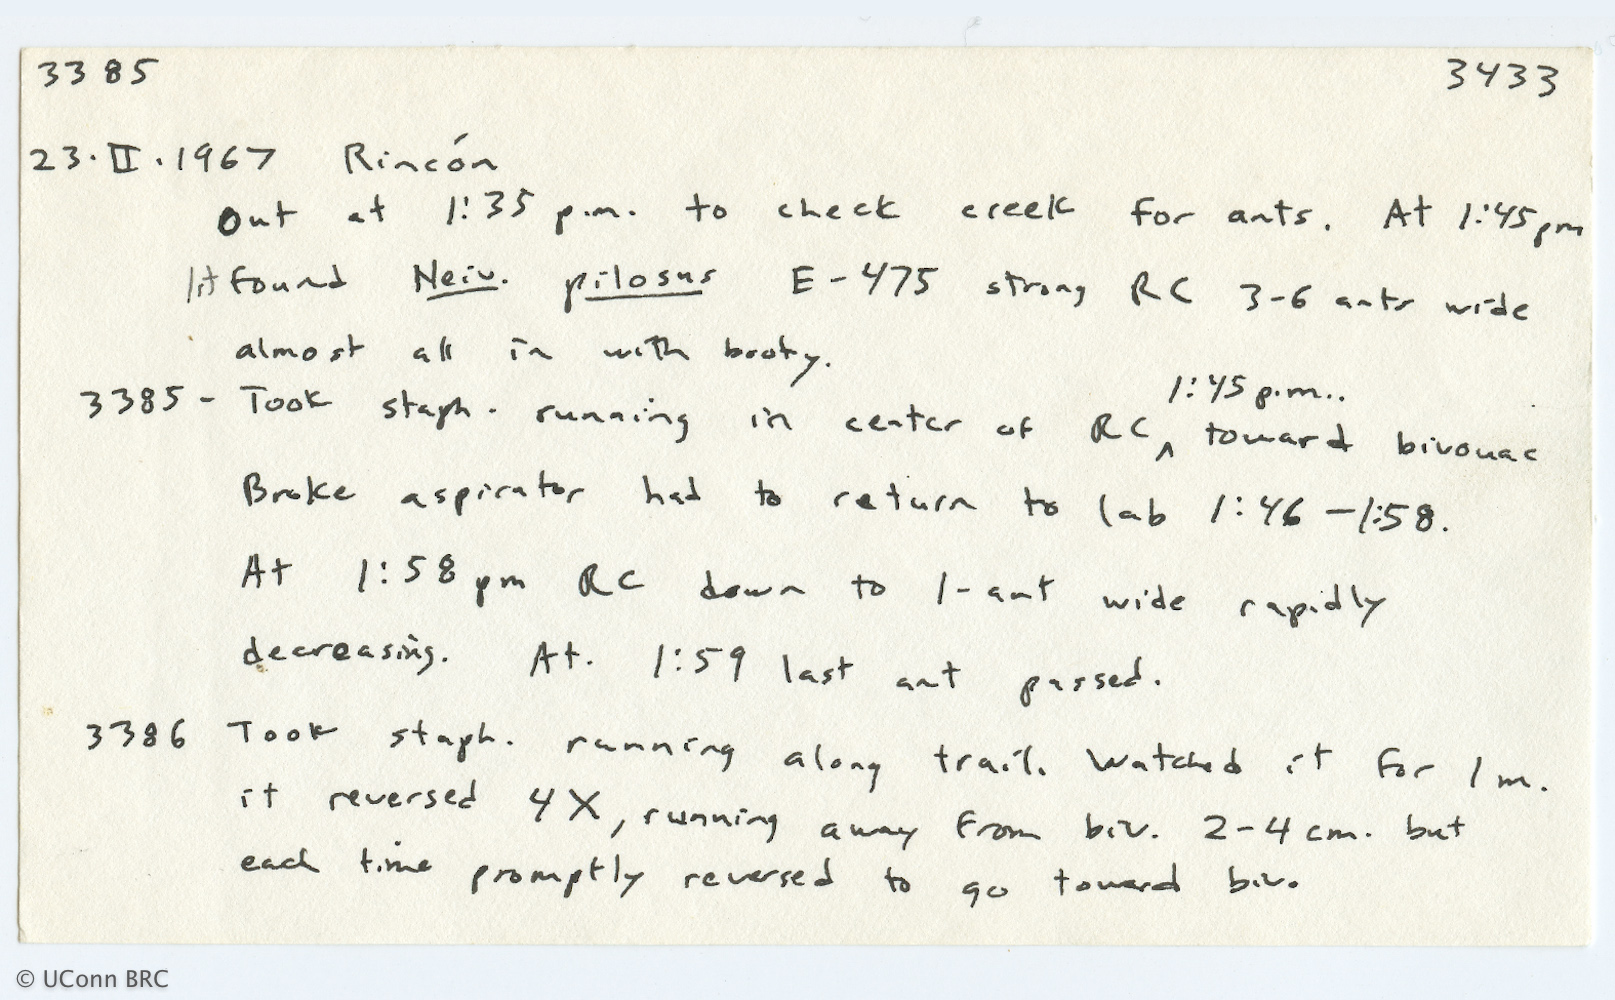 3385 3433
23.II.1967 Rincón
Out at 1:35 p.m. to check creek for ants. At 1:45 pm
found Neiv. pilosus E-475 strong RC 3-6 ants wide
almost all in with booty.
1:45 p.m..
3385- Took staph. running in center of RC ^ toward bivouac
Broke aspirator had to return to lab 1:46-1:58.
At 1:58 pm RC down to 1-ant wide rapidly
decreasing. At. 1:59 last ant passed.
3386 Took staph. running along trail. Watched it for 1 m.
it reversed 4X, running away from biv. 2-4 cm. but
each time promptly reversed to go toward biv.
© UConn BRC